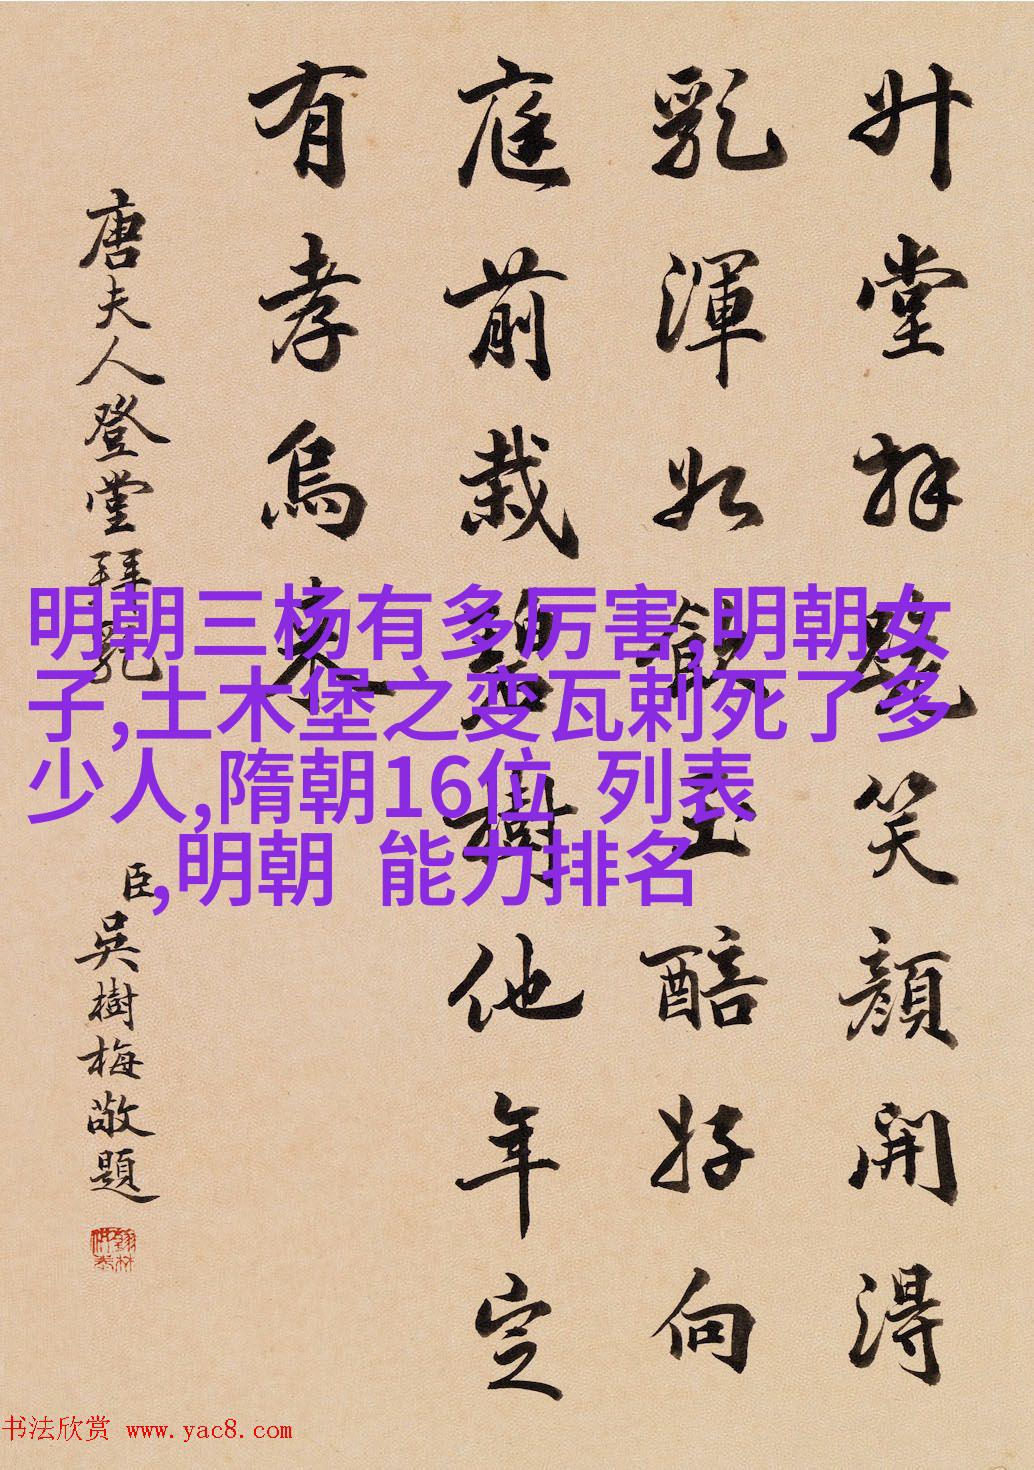 升堂拜笑顔開得
乳渾如玉醅好向
庭前栽碧樹他年定
有孝烏來
唐夫人登堂拜乳
臣吳樹梅敬題
明朝三杨有多厉害,明朝女
子,土木堡之变瓦剌死了多
少人,隋朝16位 列表
,明朝 能力排名
书法欣赏 www.yac8.com